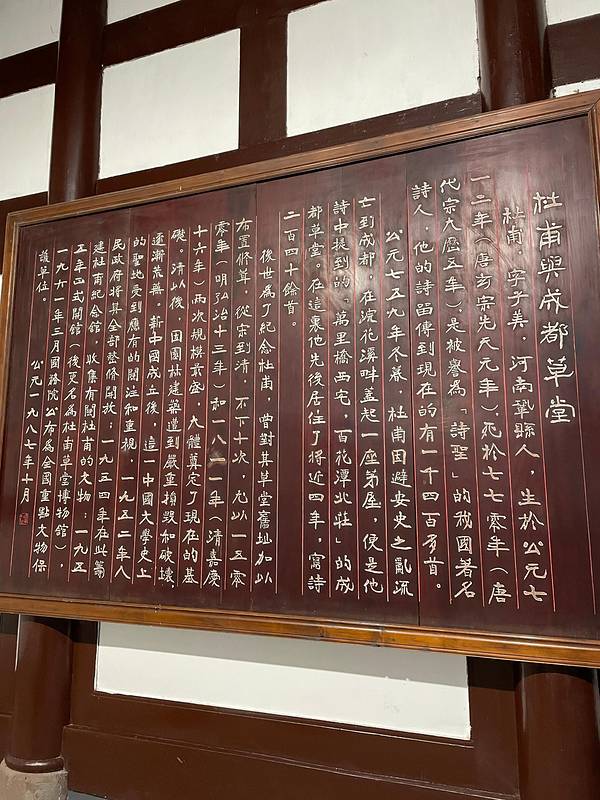 杜甫與成都草堂
杜甫，字子美，河南鞏縣人，生於公元七
一二年（唐玄宗先天元年），死於七七零年（唐
代宗大曆五年），是被譽為「詩聖」的我國著名
詩人，他的詩留傳到現在的有一千四百多首。
公元七五九年冬暮，杜甫因避安史之亂流
亡到成都，在浣花溪畔蓋起一座茅屋，便是他
詩中提到的「萬里橋西宅，百花潭北莊」的成
都草堂。在這裏他先後居住了將近四年，寫詩
二百四十餘首。
後世為了紀念杜甫，曾對其草堂舊址加以
布置修葺，從宋到清，不下十次，尤以一五零
零年（明弘治十三年）和一八一一年（清嘉慶
十六年）兩次規模最盛，大體奠定了現在的基
礎。清以後，因園林建築遭到嚴重損毀和破壞，
逐漸荒蕪。新中國成立後，這一中國文學史上
的聖地受到應有的關注和重視，一九五二年人
民政府將其全部整修開放；一九五四年在此籌
建杜甫紀念館，收集有關杜甫的文物；一九五
五年正式開館（後更名為杜甫草堂博物館），
一九六一年三月國務院公布為全國重點文物保
護單位。
公元一九八七年十月